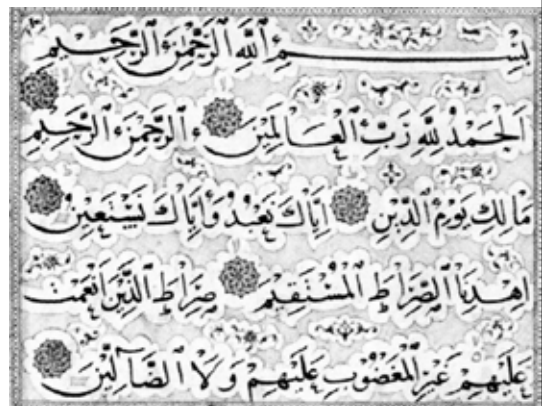 بِسْمِ ٱللَّهِ ٱلرَّحْمَٰنِ ٱلرَّحِيمِ
ٱلْحَمْدُ لِلَّهِ رَبِّ ٱلْعَالَمِينَ ٱلرَّحْمَٰنِ ٱلرَّحِيمِ
مَالِكِ يَوْمِ ٱلدِّينِ إِيَّاكَ نَعْبُدُ وَإِيَّاكَ نَسْتَعِينُ
اِهْدِنَا ٱلصِّرَاطَ ٱلْمُسْتَقِيمَ صِرَاطَ ٱلَّذِينَ اَنْعَمْتَ
عَلَيْهِمْ غَيْرِ ٱلْمَغْضُوبِ عَلَيْهِمْ وَلَا ٱلضَّآلِّينَ